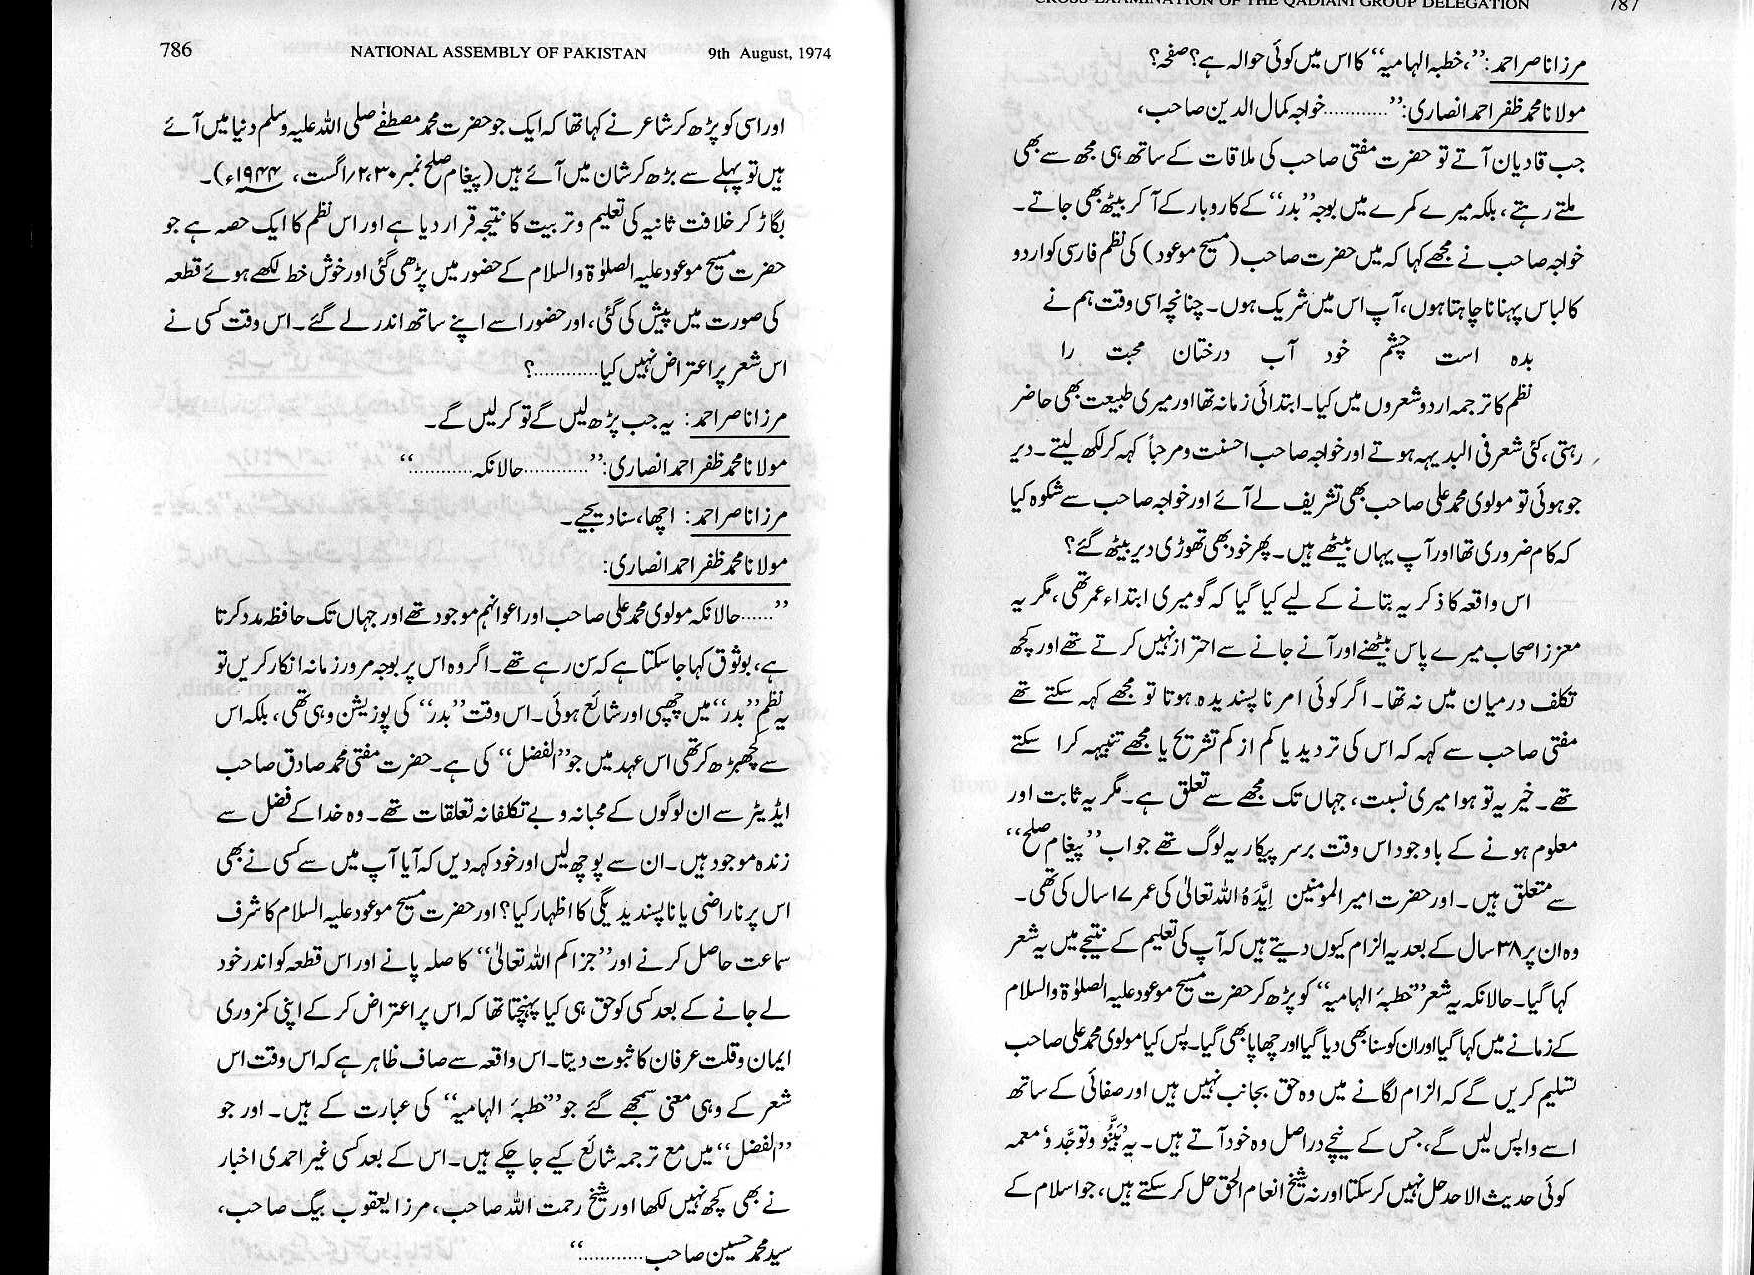 786 NATIONAL ASSEMBLY OF PAKISTAN 9th August, 1974
اور اسی کو پڑھ کر شاعر نے کہا تھا کہ ایک جو حضرت محمد مصطفےٰ صلی اللہ علیہ وسلم دنیا میں آئے
ہیں تو پہلے سے بڑھ کر شان میں آئے ہیں (پیغام صلح نمبر ۲،۳۰/اگست، ۱۹۴۴ء)۔
بگاڑ کر خلافت ثانیہ کی تعلیم و تربیت کا نتیجہ قرار دیا ہے اور اس نظم کا ایک حصہ ہے جو
حضرت مسیح موعود علیہ الصلوٰۃ والسلام کے حضور میں پڑھی گئی اور خوش خط لکھے ہوئے قطعہ
کی صورت میں پیش کی گئی، اور حضور اسے اپنے ساتھ اندر لے گئے۔ اس وقت کسی نے
اس شعر پر اعتراض نہیں کیا............؟
مرزا ناصر احمد: یہ جب پڑھ لیں گے تو کر لیں گے۔
مولانا محمد ظفر احمد انصاری: ”............حالانکہ............“
مرزا ناصر احمد: اچھا، سنا دیجیے۔
مولانا محمد ظفر احمد انصاری:
”......حالانکہ مولوی محمد علی صاحب اور اعوانہم موجود تھے اور جہاں تک حافظہ مدد کرتا
ہے، بوثوق کہا جا سکتا ہے کہ سن رہے تھے۔ اگر وہ اس پر بوجہ مرور زمانہ انکار کریں تو
یہ نظم ”بدر“ میں چھپی اور شائع ہوئی۔ اس وقت ”بدر“ کی پوزیشن وہی تھی، بلکہ اس
سے کچھ بڑھ کر تھی اس عہد میں جو ”الفضل“ کی ہے۔ حضرت مفتی محمد صادق صاحب
ایڈیٹر سے ان لوگوں کے محبانہ و بے تکلفانہ تعلقات تھے۔ وہ خدا کے فضل سے
زندہ موجود ہیں۔ ان سے پوچھ لیں اور خود کہہ دیں کہ آیا آپ میں سے کسی نے بھی
اس پر ناراضی یا ناپسندیدیگی کا اظہار کیا؟ اور حضرت مسیح موعود علیہ السلام کا شرف
سماعت حاصل کرنے اور ”جزاکم اللہ تعالیٰ“ کا صلہ پانے اور اس قطعہ کو اندر خود
لے جانے کے بعد کسی کو حق ہی کیا پہنچتا تھا کہ اس پر اعتراض کر کے اپنی کمزوری
ایمان و قلت عرفان کا ثبوت دیتا۔ اس واقعہ سے صاف ظاہر ہے کہ اس وقت اس
شعر کے وہی معنی سمجھے گئے جو ”خطبۂ الہامیہ“ کی عبارت کے ہیں۔ اور جو
”الفضل“ میں مع ترجمہ شائع کیے جا چکے ہیں۔ اس کے بعد کسی غیر احمدی اخبار
نے بھی کچھ نہیں لکھا اور شیخ رحمت اللہ صاحب، مرزا یعقوب بیگ صاحب،
سید محمد حسین صاحب............“
CROSS-EXAMINATION OF THE QADIANI GROUP DELEGATION 787
مرزا ناصر احمد: ”، خطبہ الہامیہ“ کا اس میں کوئی حوالہ ہے؟ صفحہ؟
مولانا محمد ظفر احمد انصاری: ”............خواجہ کمال الدین صاحب،
جب قادیان آتے تو حضرت مفتی صاحب کی ملاقات کے ساتھ ہی مجھ سے بھی
ملتے رہتے، بلکہ میرے کمرے میں بوجہ ”بدر“ کے کاروبار کے آ کر بیٹھ بھی جاتے۔
خواجہ صاحب نے مجھے کہا کہ میں حضرت صاحب (مسیح موعود) کی نظم فارسی کو اردو
کا لباس پہنانا چاہتا ہوں، آپ اس میں شریک ہوں۔ چنانچہ اسی وقت ہم نے
بدہ است چشم خود آب درختان محبت را
نظم کا ترجمہ اردو شعروں میں کیا۔ ابتدائی زمانہ تھا اور میری طبیعت بھی حاضر
رہتی، کئی شعر فی البدیہہ ہوتے اور خواجہ صاحب احسنت و مرحباً کہہ کر لکھ لیتے۔ دیر
جو ہوئی تو مولوی محمد علی صاحب بھی تشریف لے آئے اور خواجہ صاحب سے شکوہ کیا
کہ کام ضروری تھا اور آپ یہاں بیٹھے ہیں۔ پھر خود بھی تھوڑی دیر بیٹھ گئے؟
اس واقعہ کا ذکر یہ بتانے کے لیے کیا گیا کہ گو میری ابتداء عمر تھی، مگر یہ
معزز اصحاب میرے پاس بیٹھنے اور آنے جانے سے احتراز نہیں کرتے تھے اور کچھ
تکلف درمیان میں نہ تھا۔ اگر کوئی امر ناپسندیدہ ہوتا تو مجھے کہہ سکتے تھے
مفتی صاحب سے کہہ کہ اس کی تردید یا کم از کم تشریح یا مجھے تنبیہہ کرا سکتے
تھے۔ خیر یہ تو ہوا میری نسبت، جہاں تک مجھے سے تعلق ہے۔ مگر یہ ثابت اور
معلوم ہونے کے باوجود اس وقت برسر پیکار یہ لوگ تھے جو اب ”پیغام صلح“
سے متعلق ہیں۔ اور حضرت امیر المومنین اِیَّدَہُ اللہ تعالیٰ کی عمر ۱۷ سال کی تھی۔
وہ ان پر ۳۸ سال کے بعد یہ الزام کیوں دیتے ہیں کہ آپ کی تعلیم کے نتیجے میں یہ شعر
کہا گیا۔ حالانکہ یہ شعر ”خطبۂ الہامیہ“ کو پڑھ کر حضرت مسیح موعود علیہ الصلوٰۃ والسلام
کے زمانے میں کہا گیا اور ان کو سنا بھی دیا گیا اور چھاپا بھی گیا۔ پس کیا مولوی محمد علی صاحب
تسلیم کریں گے کہ الزام لگانے میں وہ حق بجانب نہیں ہیں اور صفائی کے ساتھ
اسے واپس لیں گے، جس کے نیچے دراصل وہ خود آتے ہیں۔ یہ وتوجَّد و معمہ
کوئی حدیث الاحد حل نہیں کر سکتا اور نہ شیخ انعام الحق حل کر سکتے ہیں، جو اسلام کے